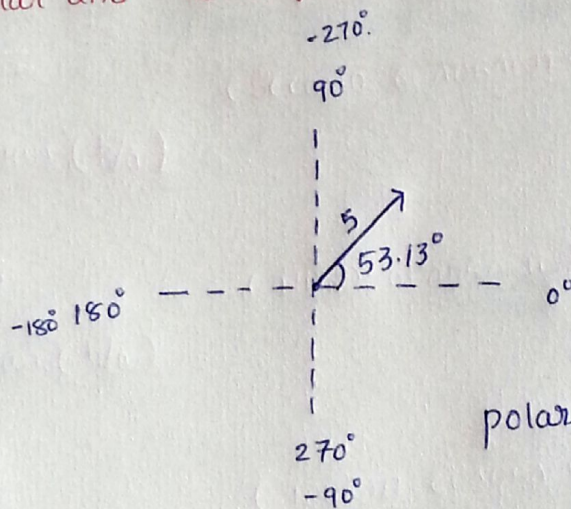 -270°.
90°
5
53.13°
-180° 180°
0°
polar
270°
-90°